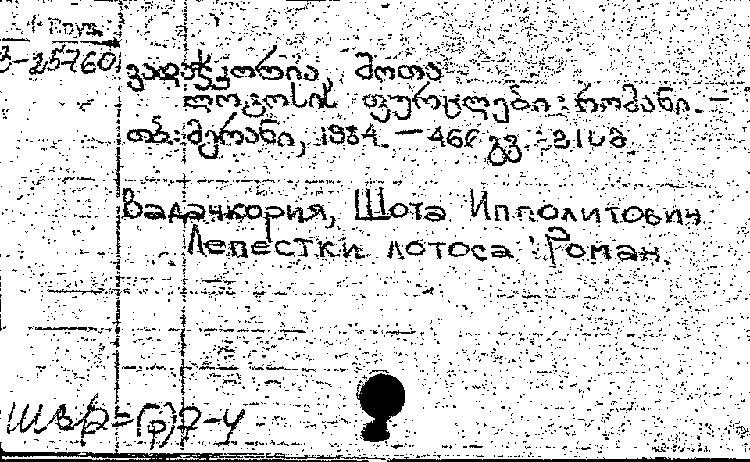 Груз.
3-25760
ვადაჭკორია, შოთა
ლოტოსის ფურცლები : რომანი. —
თბ.: მერანი, 1984. — 466 გვ. -
Вадачкория, Шота Ипполитович
Лепестки лотоса : Роман.